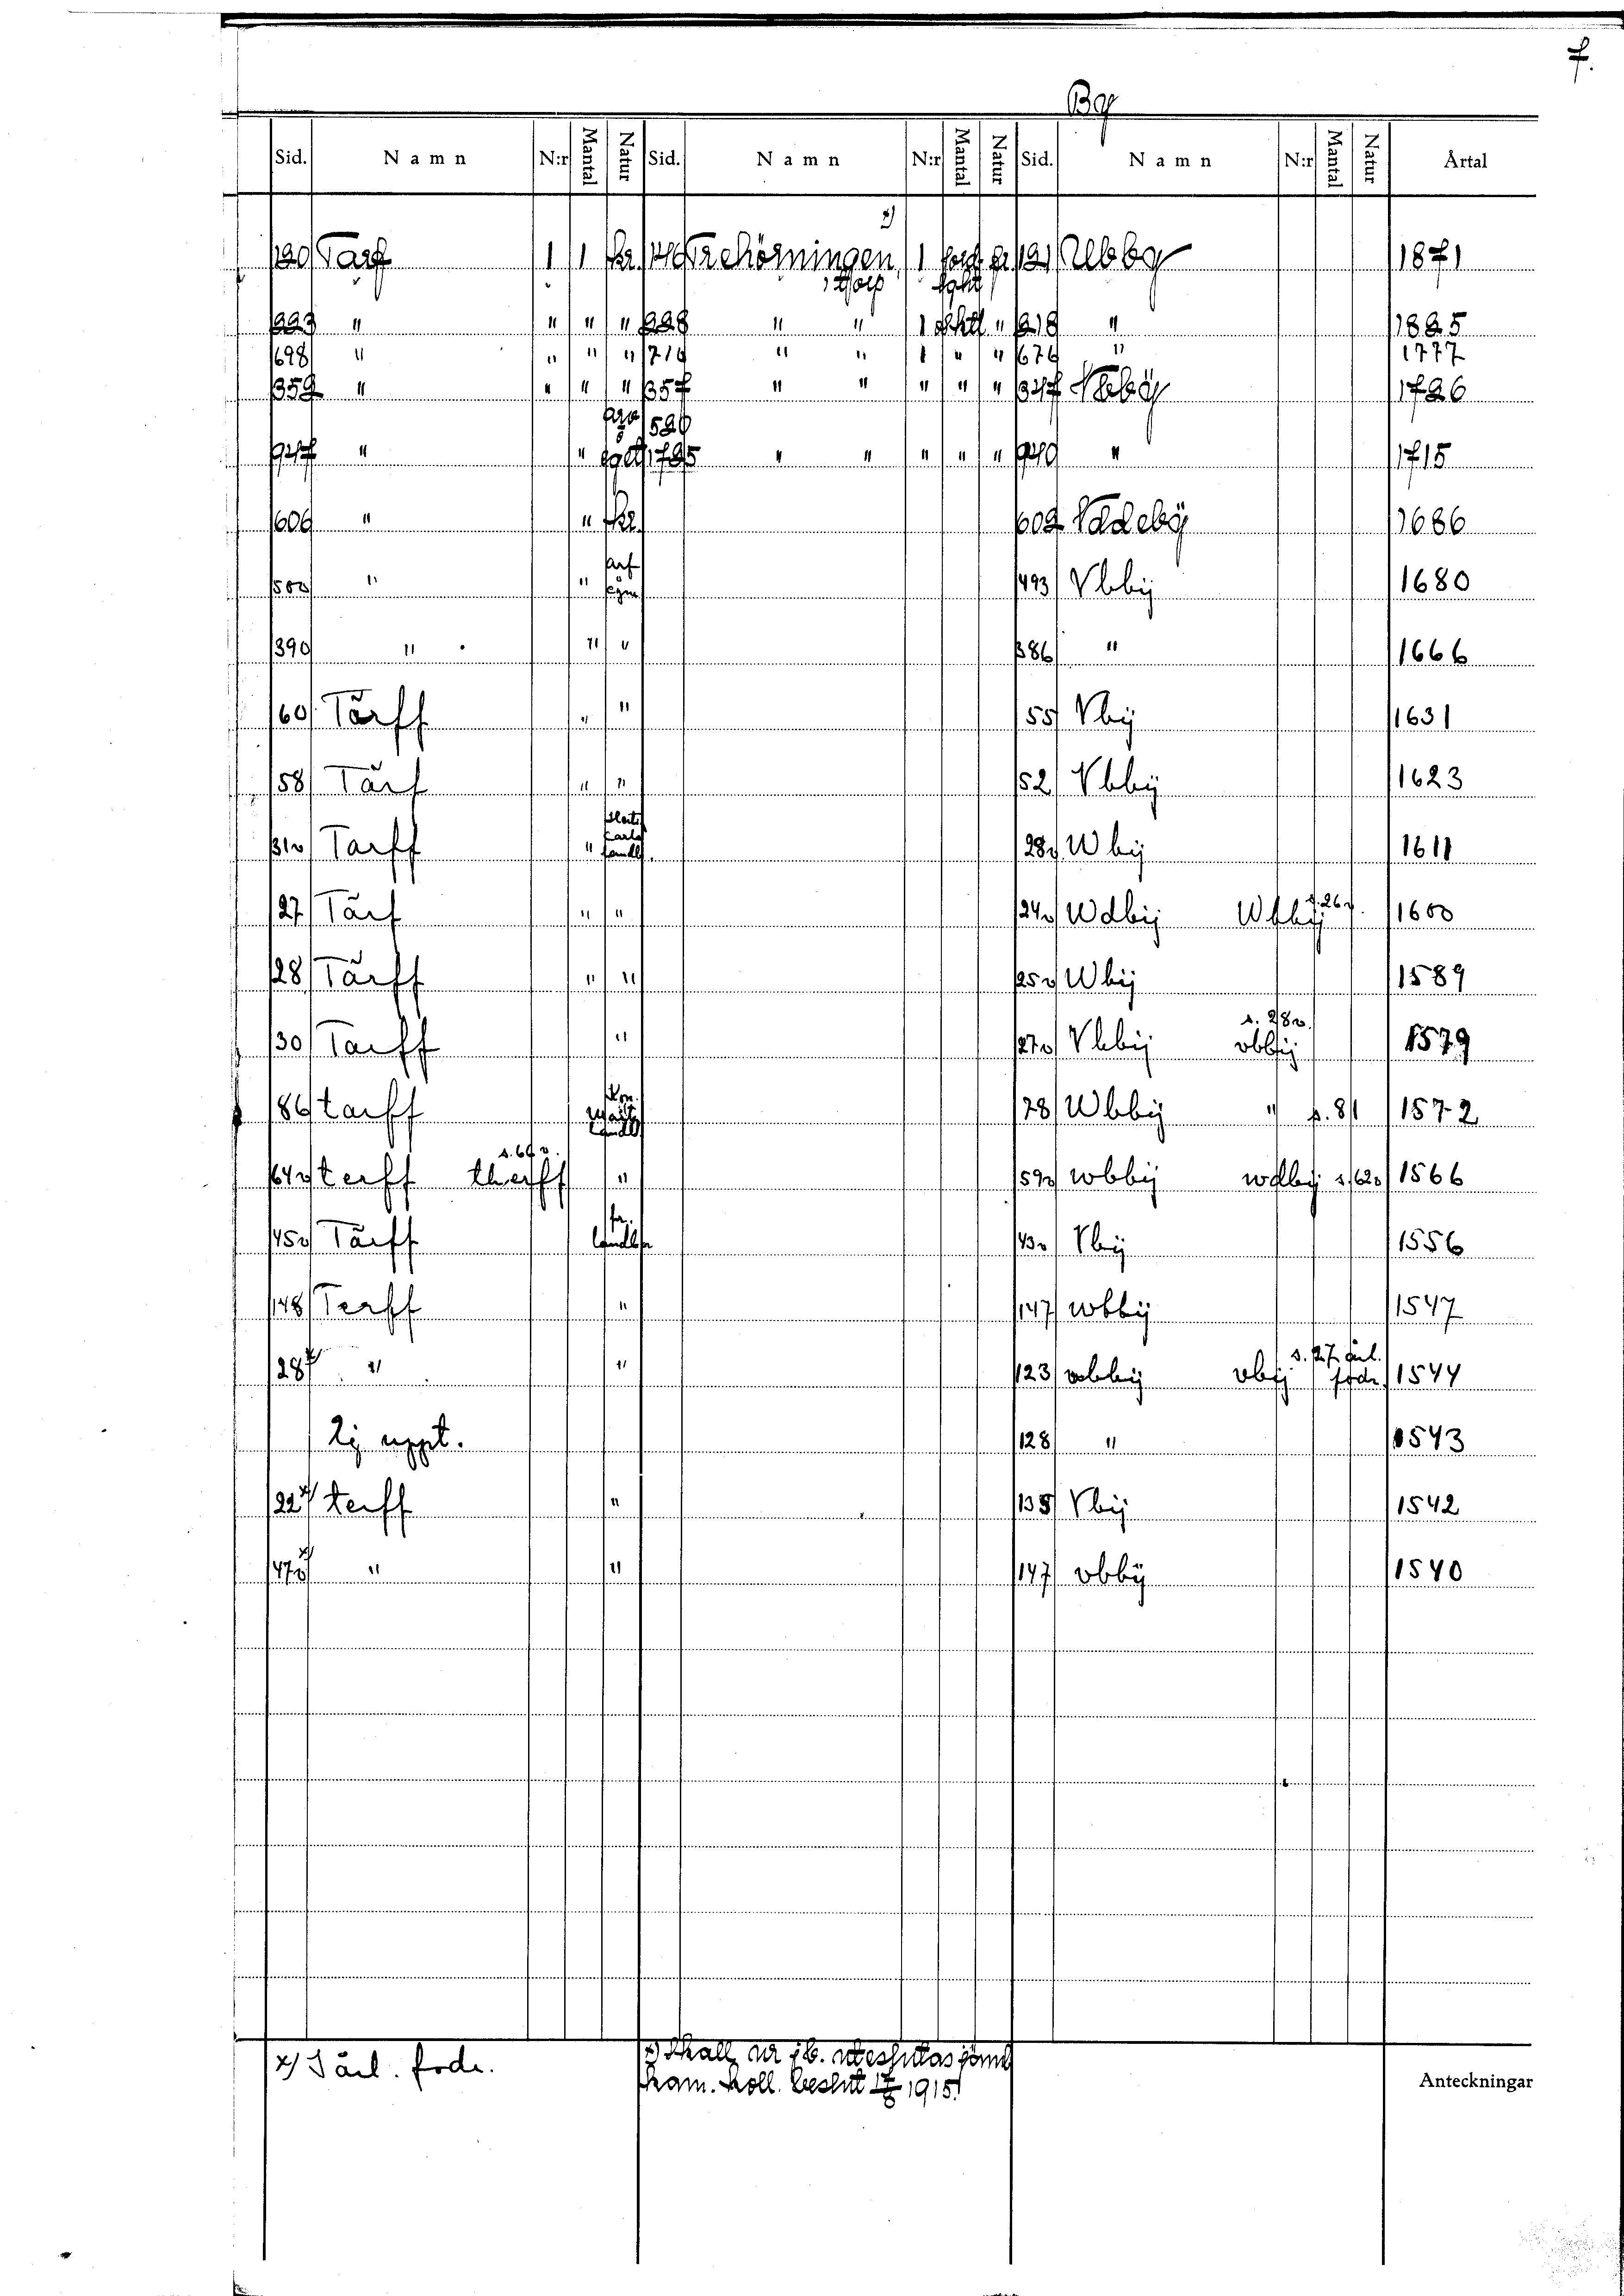 7.
By
Sid. Namn N:r Mantal Natur Sid. Namn N:r Mantal Natur Sid. Namn N:r Mantal Natur Årtal
x)
120 Tarf 1 1 kr. 146 Trehörningen, 1 fr 121 Ubby 1871
torp
223 " " " " 228 " " 1 " 218 " 1825
698 " " " " 710 " " 1 " " 676 " 1777
352 " " " " 357 " " " " " 347 1726
520
947 " " eget 1725 " " " " " 940 " 1715
606 " " kr. 602 1686
arf
500 " " egne 493 Vbbij 1680
390 " " " 386 " 1666
60 Tärff " " 55 Vbij 1631
58 Tärf " " 52 Vbbij 1623
Carls
31v Tarff " Landb. 28v Wbij 1611
27 Tärf " " 24v Wdbij Wbbij s.26v. 1600
28 Tärff " " 25v Wbij 1589
s. 28v.
30 Tarff " 27v Vbbij vbbij 1579
Kon.
Maits
86 tarff Landb. 78 Wbbij " s. 81 1572
s. 66v.
64v terff therff " 59v wbbij wdbij s. 62v 1566
fr.
45v Tärff landbr 43v Vbij 1556
148 Terff " 147 wbbij 1547
s. 27 årl.
28 x) " " 123 vbbij vbij fodr. 1544
Ej uppt. 128 " 1543
22 x) terff " 135 Vbij 1542
47v x) " " 147 vbbij 1540
x) I årl. fodr.
x) Skall ur jb. uteslutas jäml
kam. koll. beslut 1915.
Anteckningar